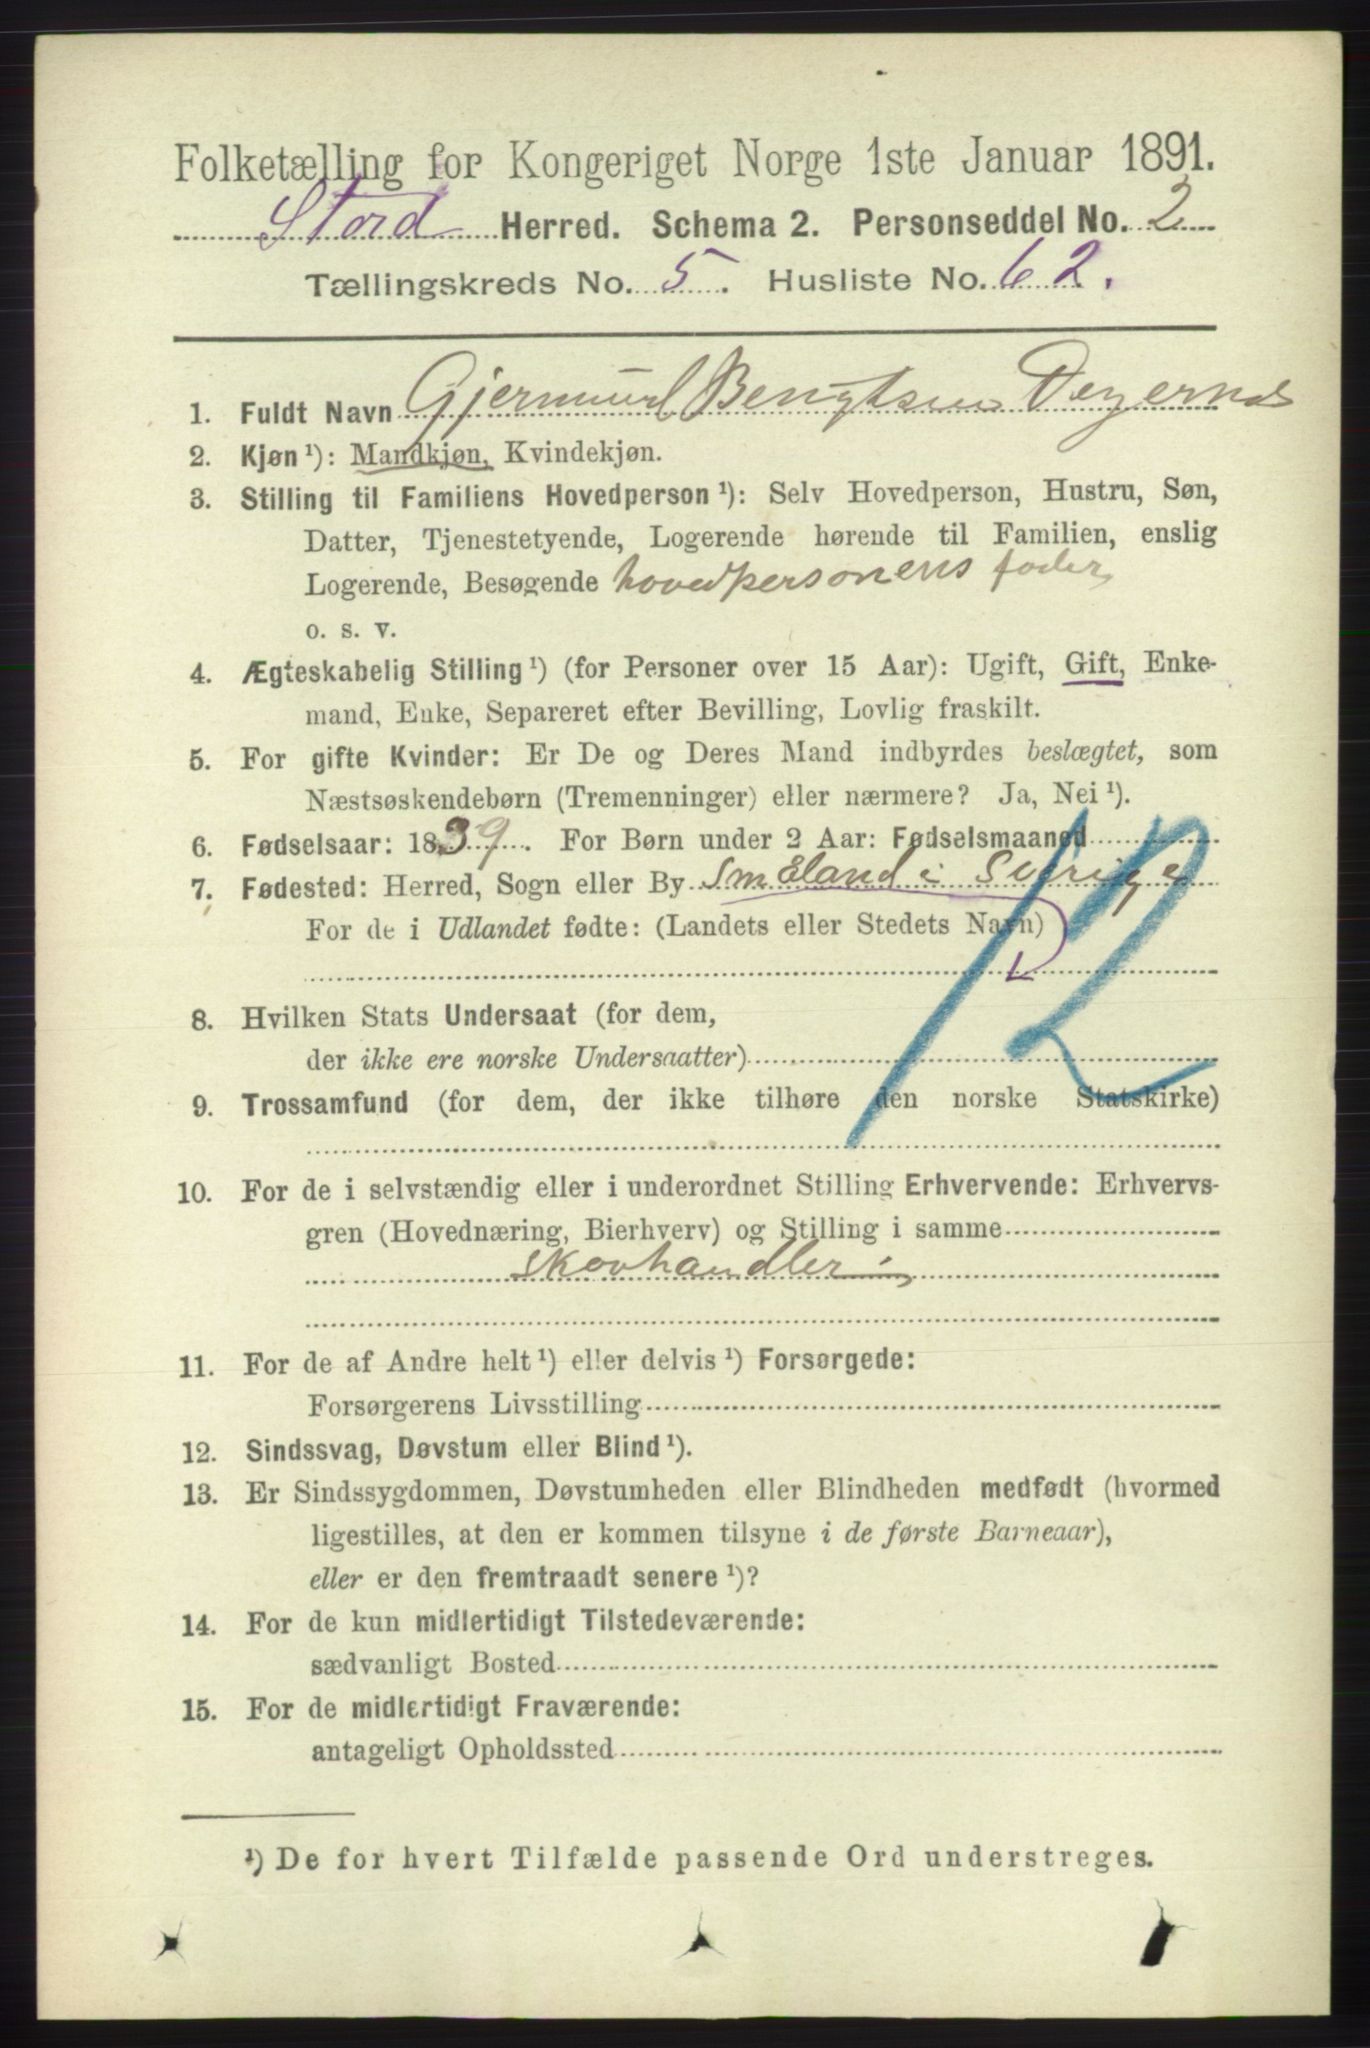 Folketælling for Kongeriget Norge 1ste Januar 1891.
Stord Herred. Schema 2. Personseddel No. 2
Tællingskreds No. 5. Husliste No. 62.
1. Fuldt Navn Gjermund Bengtsen Degernes
2. Kjøn ¹): Mandkjøn, Kvindekjøn.
3. Stilling til Familiens Hovedperson ¹): Selv Hovedperson, Hustru, Søn,
Datter, Tjenestetyende, Logerende hørende til Familien, enslig
Logerende, Besøgende hovedpersonens fader
o. s. v.
4. Ægteskabelig Stilling ¹) (for Personer over 15 Aar): Ugift, Gift, Enke-
mand, Enke, Separeret efter Bevilling, Lovlig fraskilt.
5. For gifte Kvinder: Er De og Deres Mand indbyrdes beslægtet, som
Næstsøskendebørn (Tremenninger) eller nærmere? Ja, Nei ¹).
6. Fødselsaar: 1839. For Børn under 2 Aar: Fødselsmaaned
7. Fødested: Herred, Sogn eller By Småland i Sverige
For de i Udlandet fødte: (Landets eller Stedets Navn)
12
8. Hvilken Stats Undersaat (for dem,
der ikke ere norske Undersaatter)
9. Trossamfund (for dem, der ikke tilhøre den norske Statskirke)
10. For de i selvstændig eller i underordnet Stilling Erhvervende: Erhvervs-
gren (Hovednæring, Bierhverv) og Stilling i samme
skovhandler
11. For de af Andre helt ¹) eller delvis ¹) Forsørgede:
Forsørgerens Livsstilling
12. Sindssvag, Døvstum eller Blind ¹).
13. Er Sindssygdommen, Døvstumheden eller Blindheden medfødt (hvormed
ligestilles, at den er kommen tilsyne i de første Barneaar),
eller er den fremtraadt senere ¹)?
14. For de kun midlertidigt Tilstedeværende:
sædvanligt Bosted
15. For de midlertidigt Fraværende:
antageligt Opholdssted
¹) De for hvert Tilfælde passende Ord understreges.